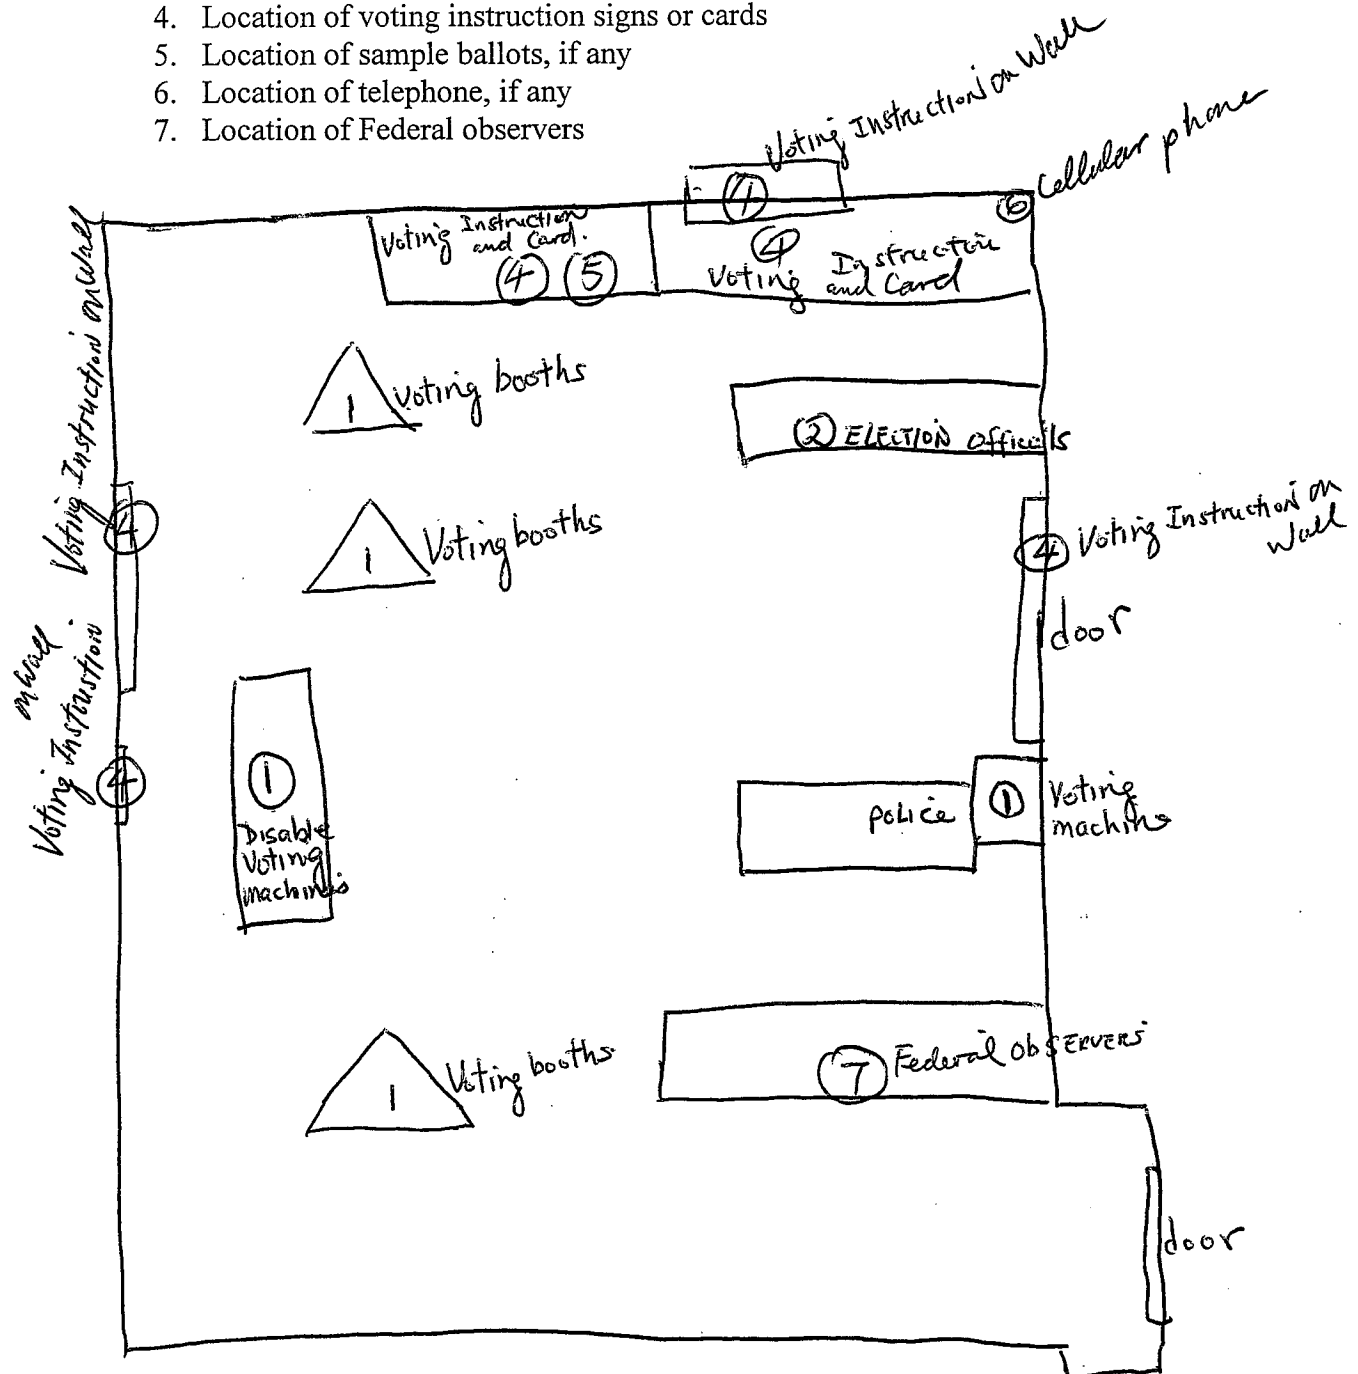 4. Location of voting instruction signs or cards
5. Location of sample ballots, if any
6. Location of telephone, if any
7. Location of Federal observers
Voting Instruction on Wall
4
Cellular phone
6
Voting Instruction
and Card.
4 5
4
Voting Instruction
and Card
Voting Instruction on Wall
4
1
Voting booths
2 ELECTION Officails
1
Voting booths
4 Voting Instruction on
Wall
door
on Wall
Voting Instruction
4
1
Disable
Voting
machines
Police
1
Voting
machine
1
Voting booths
7 Federal ObSERVERS
door